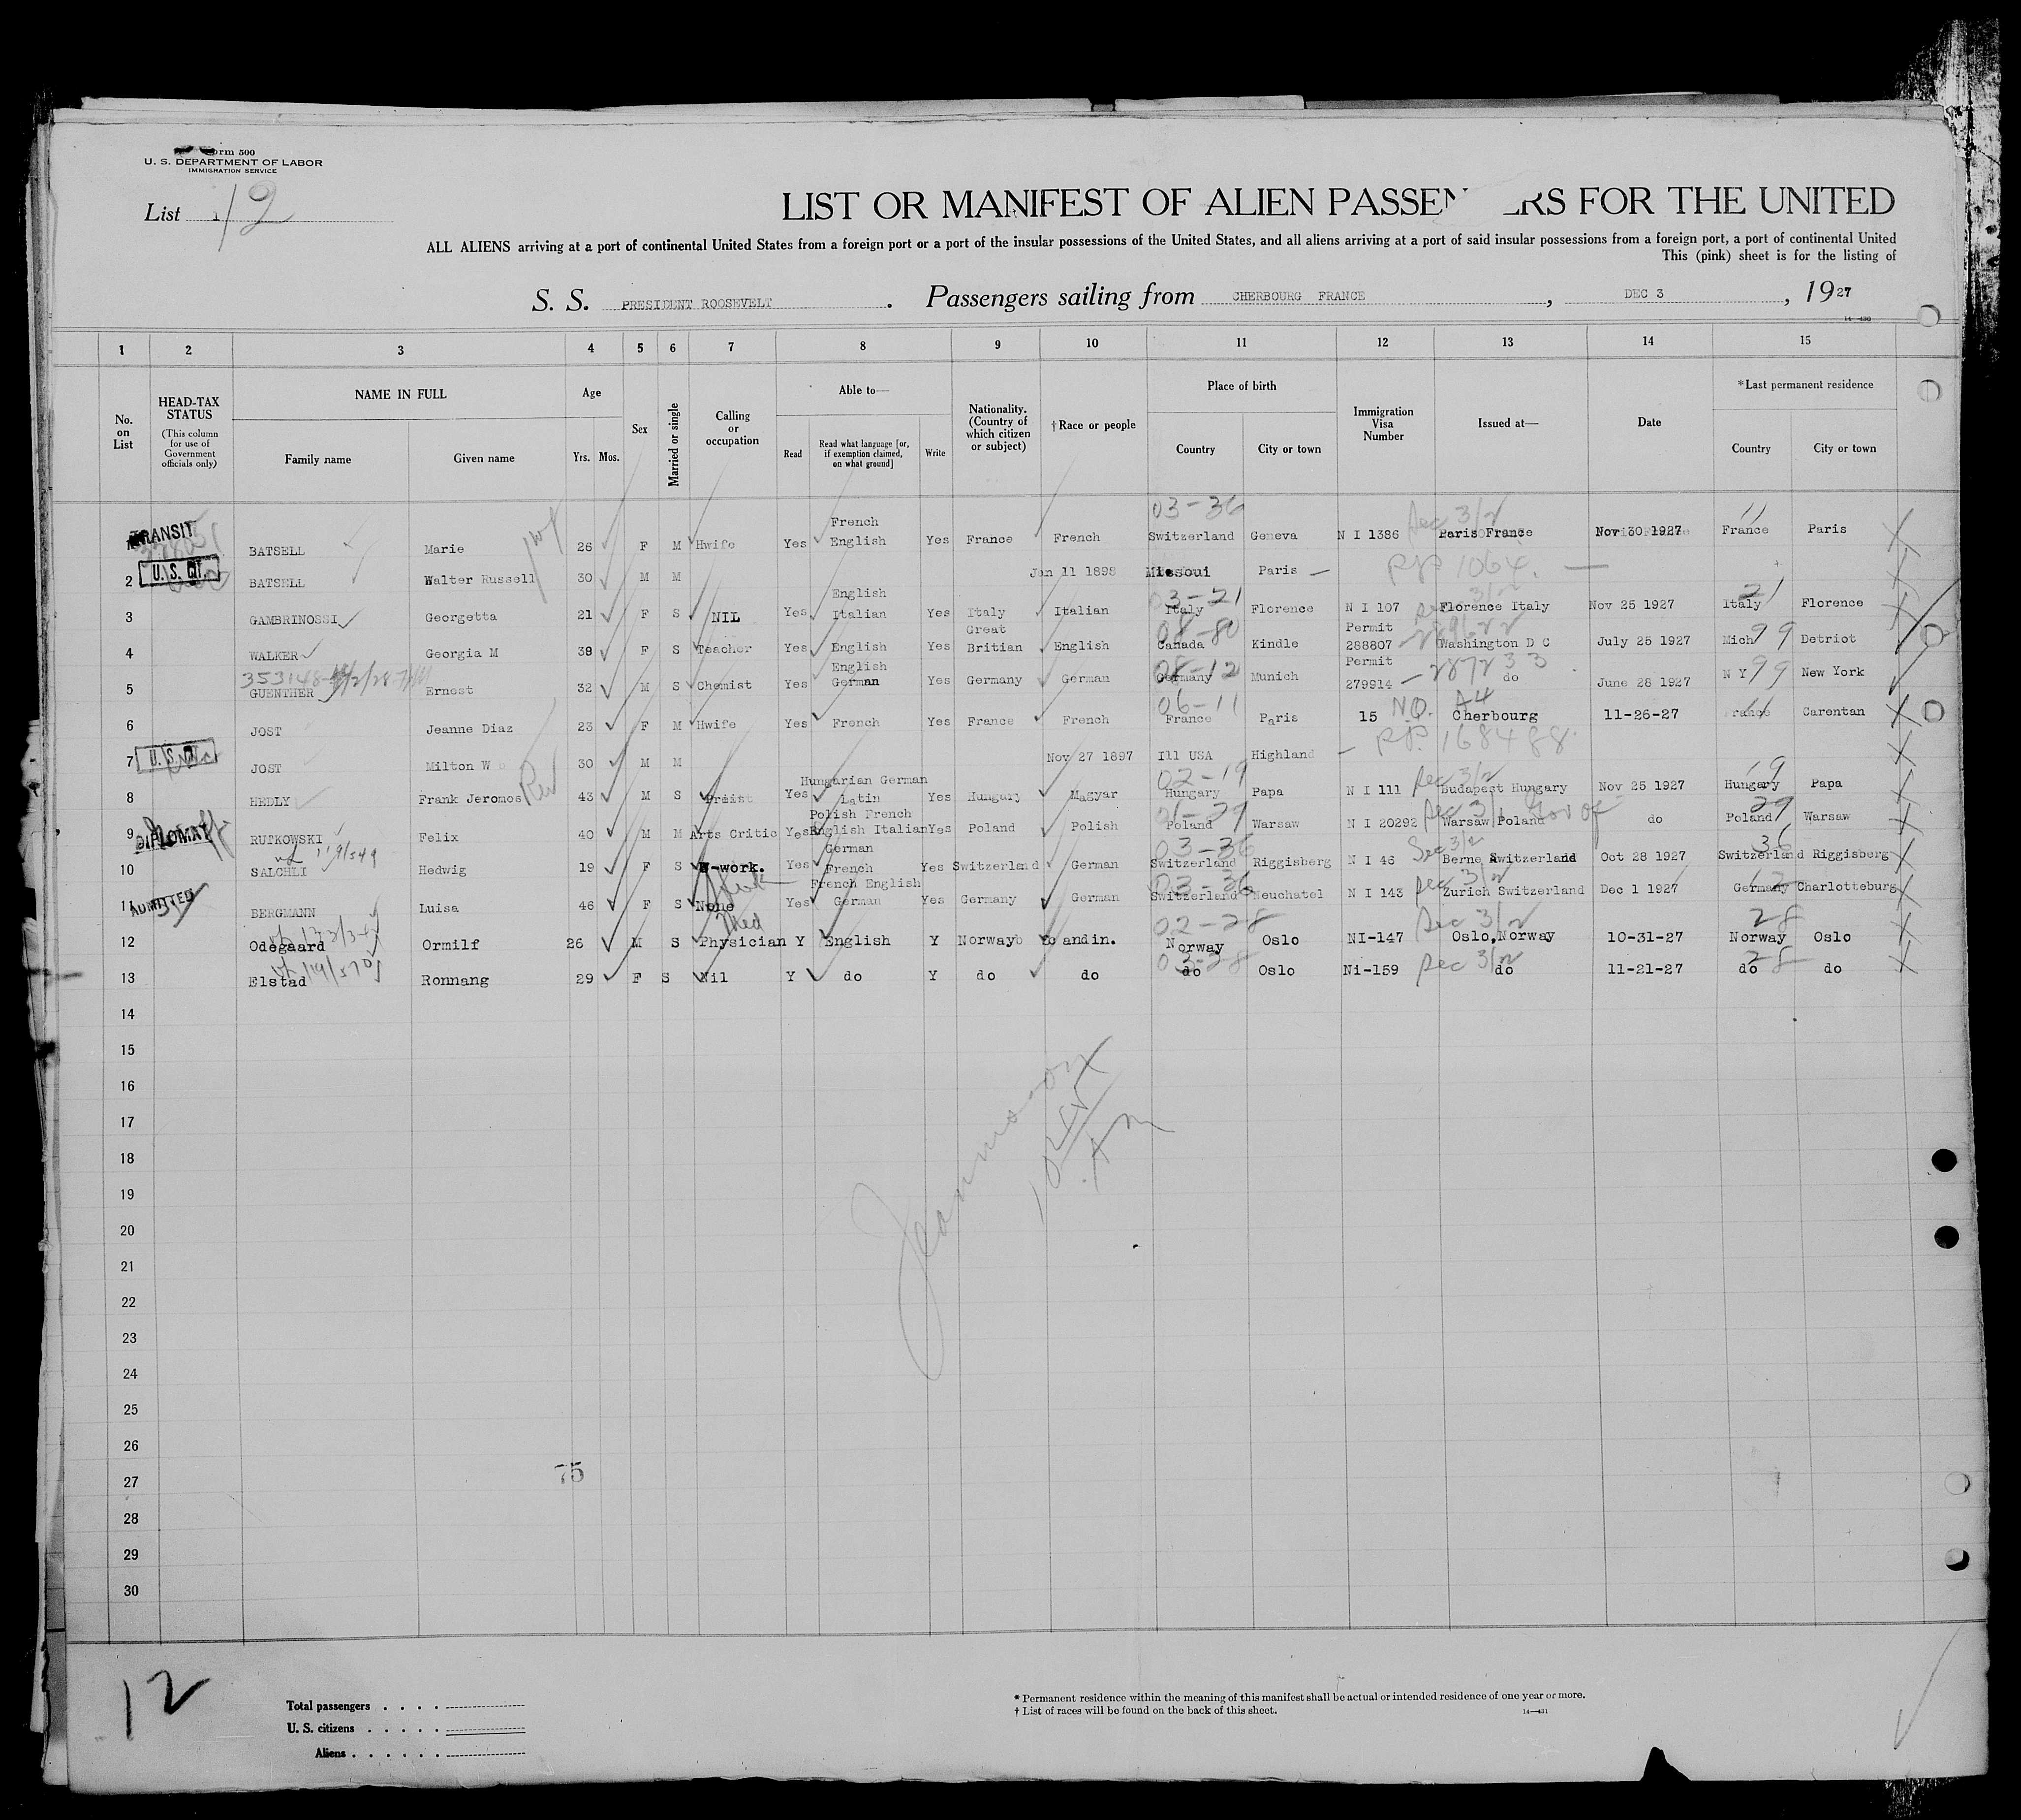 Form 500
U. S. DEPARTMENT OF LABOR
IMMIGRATION SERVICE
List 1/2
LIST OR MANIFEST OF ALIEN PASSENGERS FOR THE UNITED
ALL ALIENS arriving at a port of continental United States from a foreign port or a port of the insular possessions of the United States, and all aliens arriving at a port of said insular possessions from a foreign port, a port of continental United
This (pink) sheet is for the listing of
S. S. PRESIDENT ROOSEVELT . Passengers sailing from CHERBOURG FRANCE , DEC 3 , 1927
14-430
1 2 3 4 5 6 7 8 9 10 11 12 13 14 15
No. on List
HEAD-TAX STATUS (This column for use of Government officials only)
NAME IN FULL Family name Given name
Age Yrs. Mos.
Sex
Married or single
Calling or occupation
Able to— Read Read what language [or, if exemption claimed, on what ground] Write
Nationality. (Country of which citizen or subject)
†Race or people
Place of birth Country City or town
Immigration Visa Number
Issued at—
Date
*Last permanent residence Country City or town
TRANSIT BATSELL Marie 26 F M Hwife Yes French English Yes France French 03-36 Switzerland Geneva N I 1386 Dec 3/2 Paris France Nov 30 1927 11 France Paris
2 U.S. CIT. BATSELL Walter Russell 30 M M Jan 11 1898 Missoui Paris PP 1064.
3 GAMBRINOSSI Georgetta 21 F S NIL Yes English Italian Yes Italy Italian 03-21 Italy Florence N I 107 3/2 Florence Italy Nov 25 1927 21 Italy Florence
4 WALKER Georgia M 38 F S Teacher Yes English Yes Great Britian English 08-80 Canada Kindle Permit 288807 Washington D C July 25 1927 Mich 99 Detriot
5 353148 GUENTHER Ernest 32 M S Chemist Yes English German Yes Germany German 08-12 Germany Munich Permit 279914 — 287233 do June 28 1927 N Y 99 New York
6 JOST Jeanne Diaz 23 F M Hwife Yes French Yes France French 06-11 France Paris 15 N.Q. A4 Cherbourg 11-26-27 France Carentan
7 U.S. CIT. JOST Milton W 30 M M Nov 27 1897 Ill USA Highland — PP. 168488.
8 HEDLY Frank Jeromos 43 M S Preist Yes Hungarian German Latin Yes Hungary Magyar 02-19 Hungary Papa N I 111 Dec 3/2 Budapest Hungary Nov 25 1927 19 Hungary Papa
9 DIPLOMAT RUTKOWSKI Felix 40 M M Arts Critic Yes Polish French English Italian Yes Poland Polish 01-29 Poland Warsaw N I 20292 Warsaw Poland do 29 Poland Warsaw
10 SALCHLI Hedwig 19 F S H-work. Yes German French Yes Switzerland German 03-36 Switzerland Riggisberg N I 46 Sec 3/2 Berne Switzerland Oct 28 1927 36 Switzerland Riggisberg
11 ADMITTED BERGMANN Luisa 46 F S None Yes French English German Yes Germany German 03-36 Switzerland Neuchatel N I 143 Dec 3/2 Zurich Switzerland Dec 1 1927 12 Germany Charlotteburg
12 Odegaard Ormilf 26 M S Med Physician Y English Y Norway Scandin. 02-28 Norway Oslo NI-147 Dec 3/2 Oslo,Norway 10-31-27 28 Norway Oslo
13 Elstad Ronnang 29 F S Nil Y do Y do do 03-28 do Oslo Ni-159 Dec 3/2 do 11-21-27 28 do do
14
15
16
17
18
19
20
21
22
23
24
25
26
27
28
29
30
75
12
Total passengers
U. S. citizens
Aliens
* Permanent residence within the meaning of this manifest shall be actual or intended residence of one year or more.
† List of races will be found on the back of this sheet.
14-431